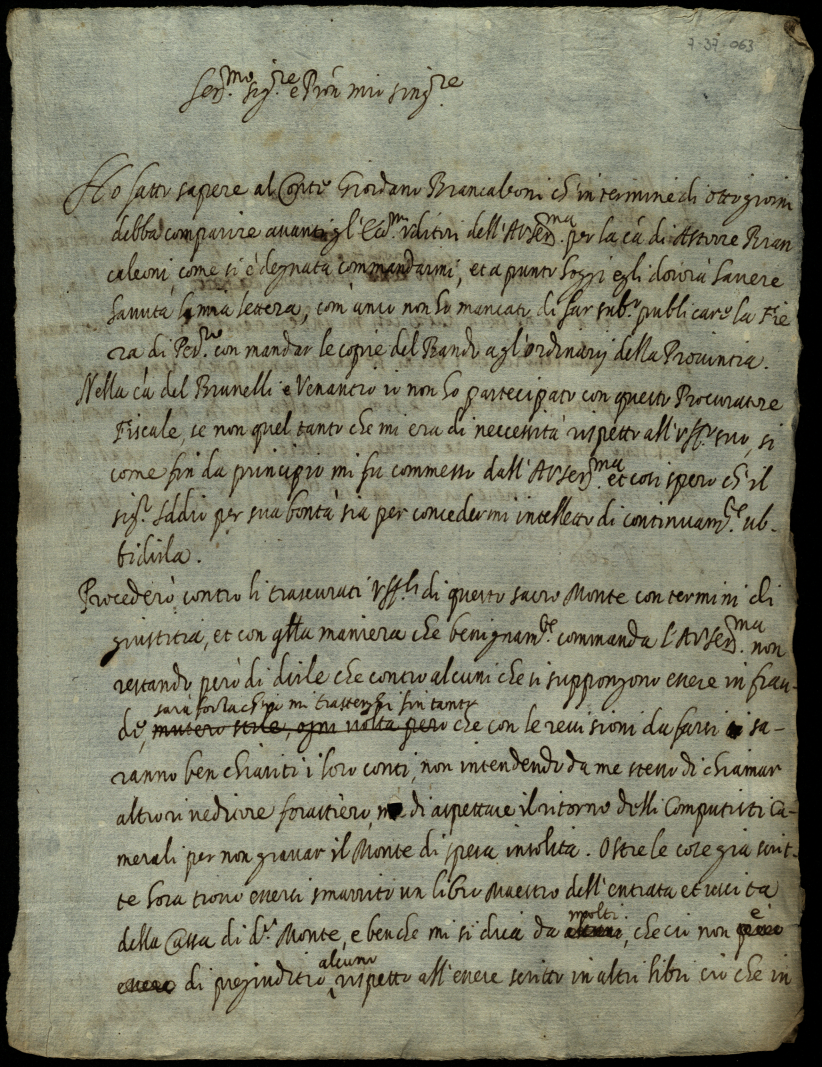 7-37-063
Ser.mo sig.re e Prōn mio sing.re
Ho fatto sapere al Conte Giordano Brancaleoni ch'in termine di otto giorni
debba comparire avanti gl'Ecc.mi Uditori dell'A.V.Ser.ma per la cā di Astorre Bran
caleoni, come si è degnata commandarmi, et a punto hoggi egli dovrà havere
havuta la mia lettera, com'anco non ho mancato di far sub.o publicare la Fie
ra di con mandar le copie del Bando agl'ordinarij della Provintia.
Nella cā del Brunelli e Venantio io non ho partecipato con questo Procuratore
Fiscale, se non quel tanto che mi era di neccessità rispetto all'uff.o suo, si
come fin da principio mi fu commesso dall'A.V.Ser.ma et così spero ch'il
sig.r Iddio per sua bontà sia per concedermi intelletto di continuam.te ub-
bidirla.
Procederò contro li trascurati Uff.li di questo sacro Monte con termini di
giustitia, et con qlla maniera che benignam.te commanda l'A.V.Ser.ma non
restando però di dirle che contro alcuni che si suppongono essere in frau-
sarà forza ch'io mi trattenghi sin tanto
de, mutero stile, ogni volta pero che con le revisioni da farsi sa-
ranno ben chiariti i loro conti, non intendendo da me stesso di chiamar
altro rivedirre forastiero, ma di aspettare il ritorno delli Computisti Ca-
merali per non gravar il Monte di spesa insolita. Oltre le cose già scrit-
te hora trovo essersi smarrito un libro Maestro dell'entrata et uscita
della Cassa di d.o Monte, e benche mi si dica da molti, che ciò non è
essere di pregiuditio alcuno rispetto all'essere scritto in altri libri ciò che in